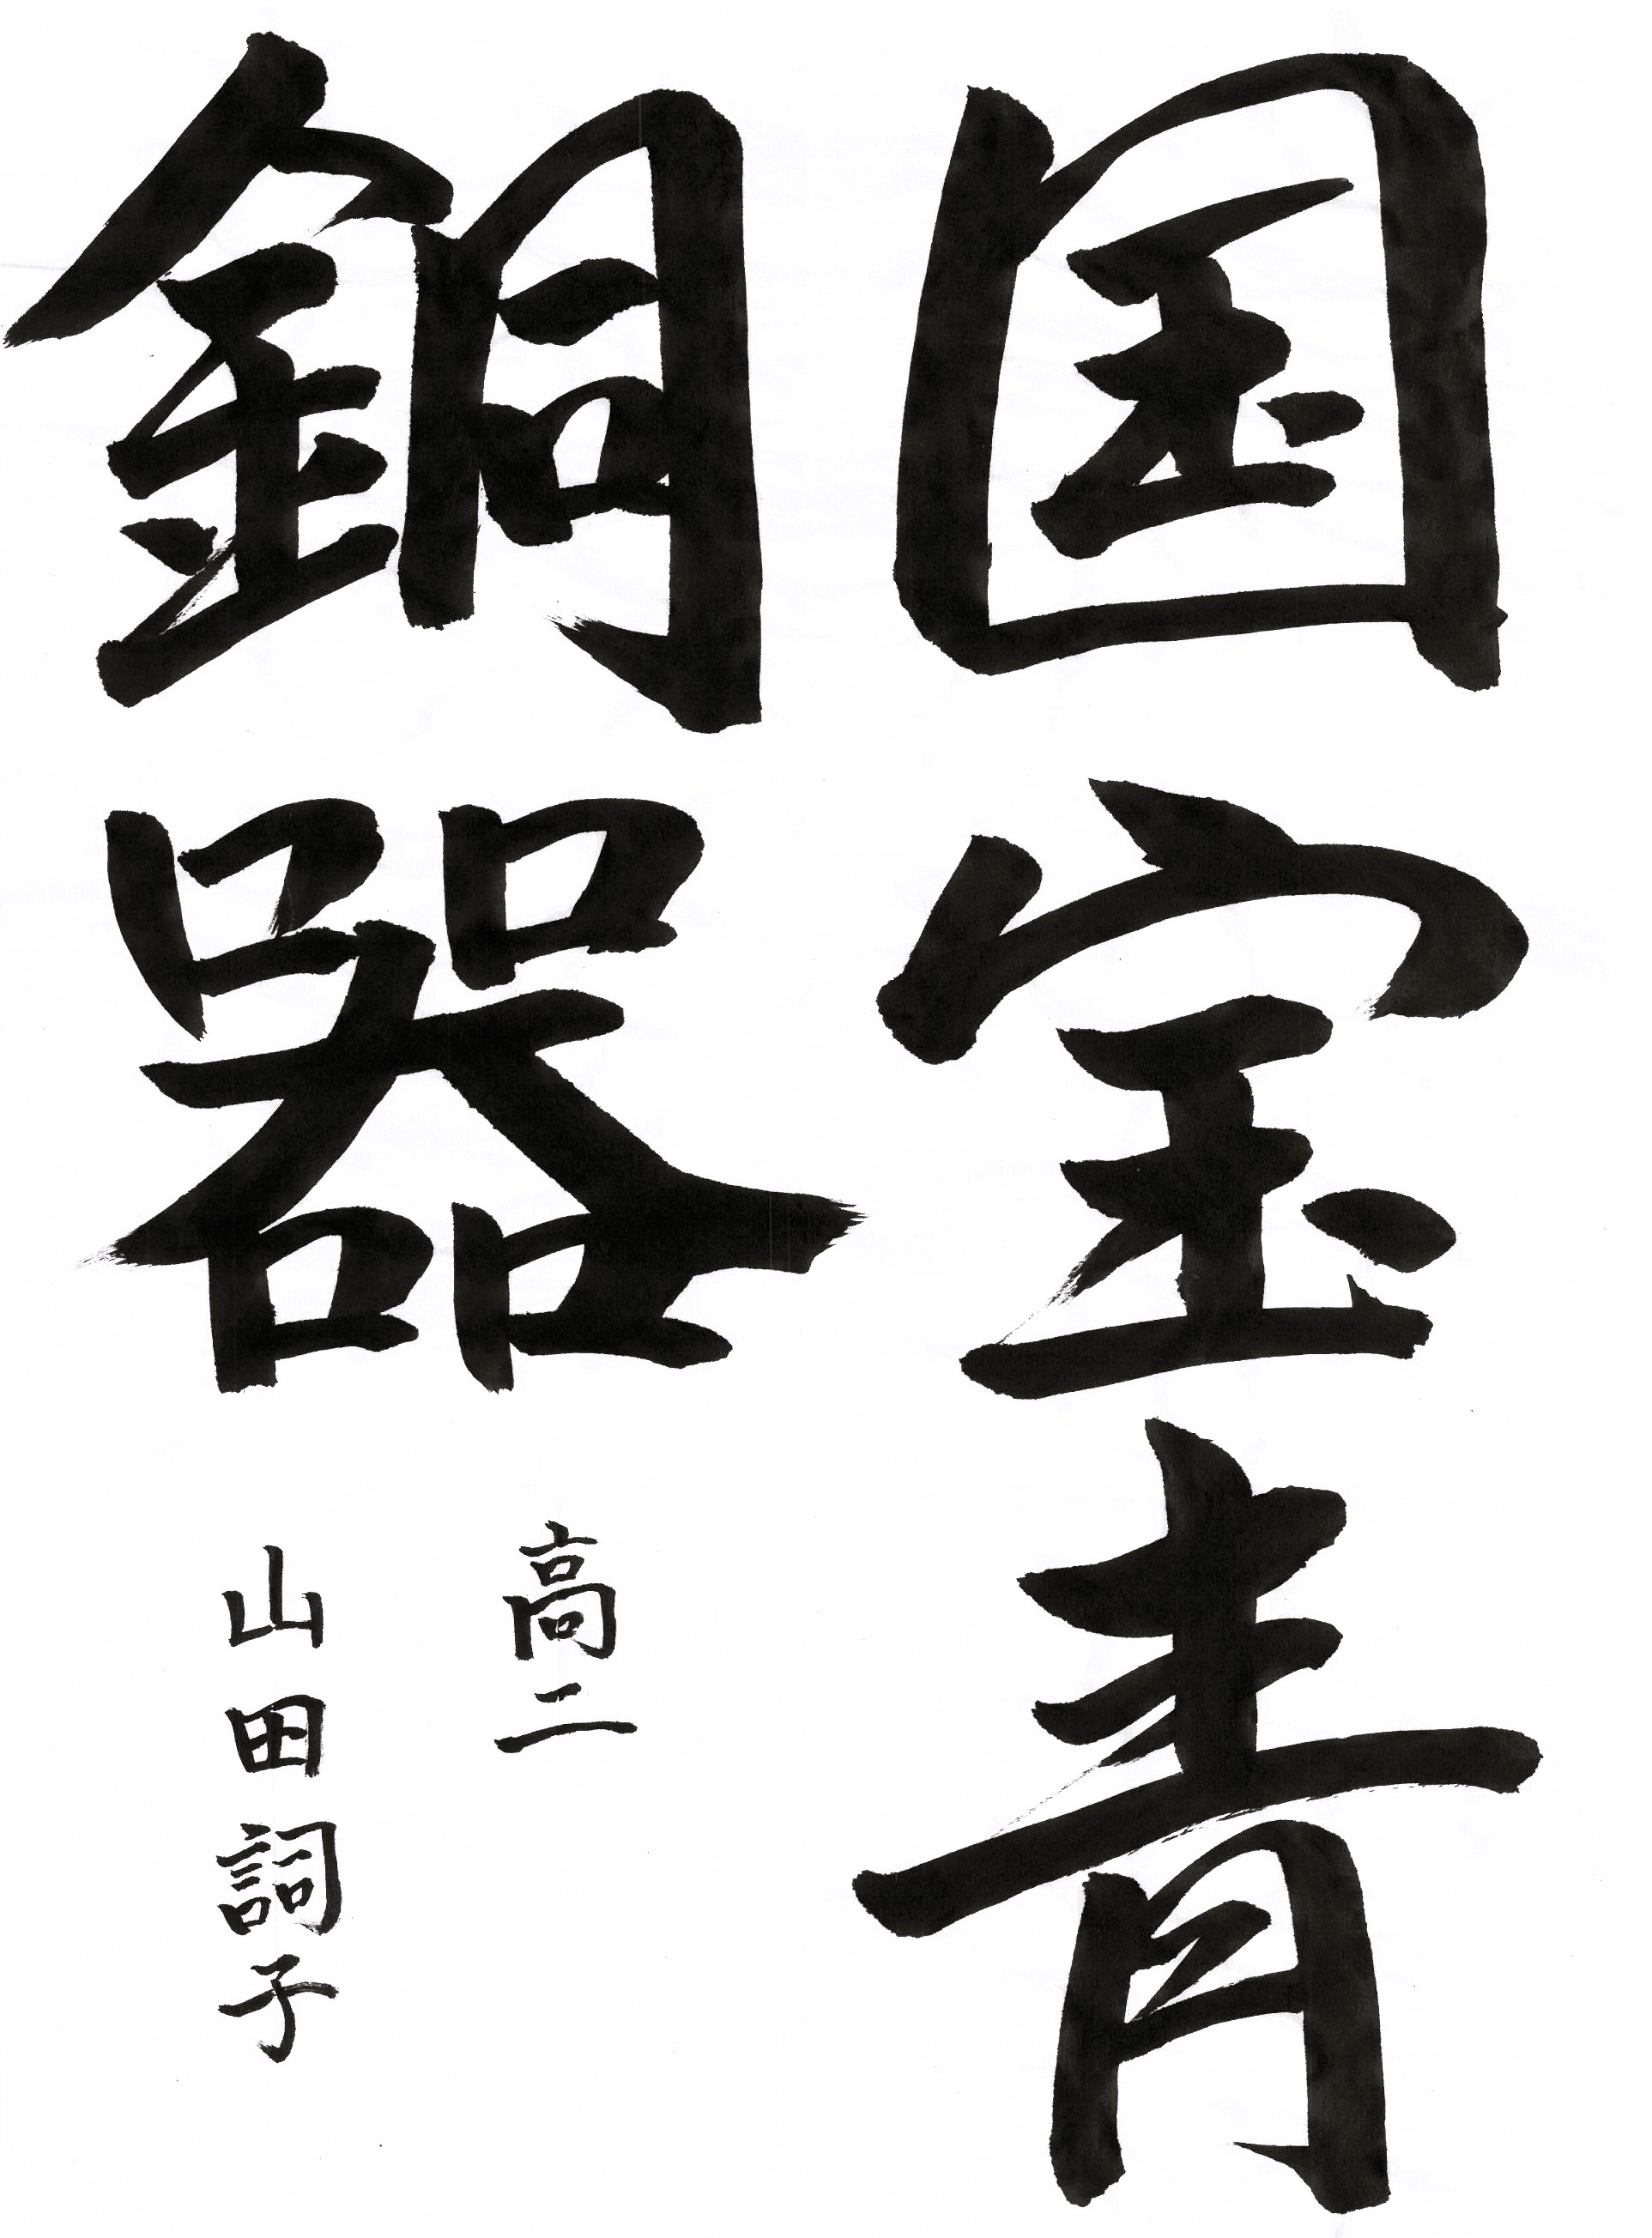 国宝青
銅器
高二
山田詞子